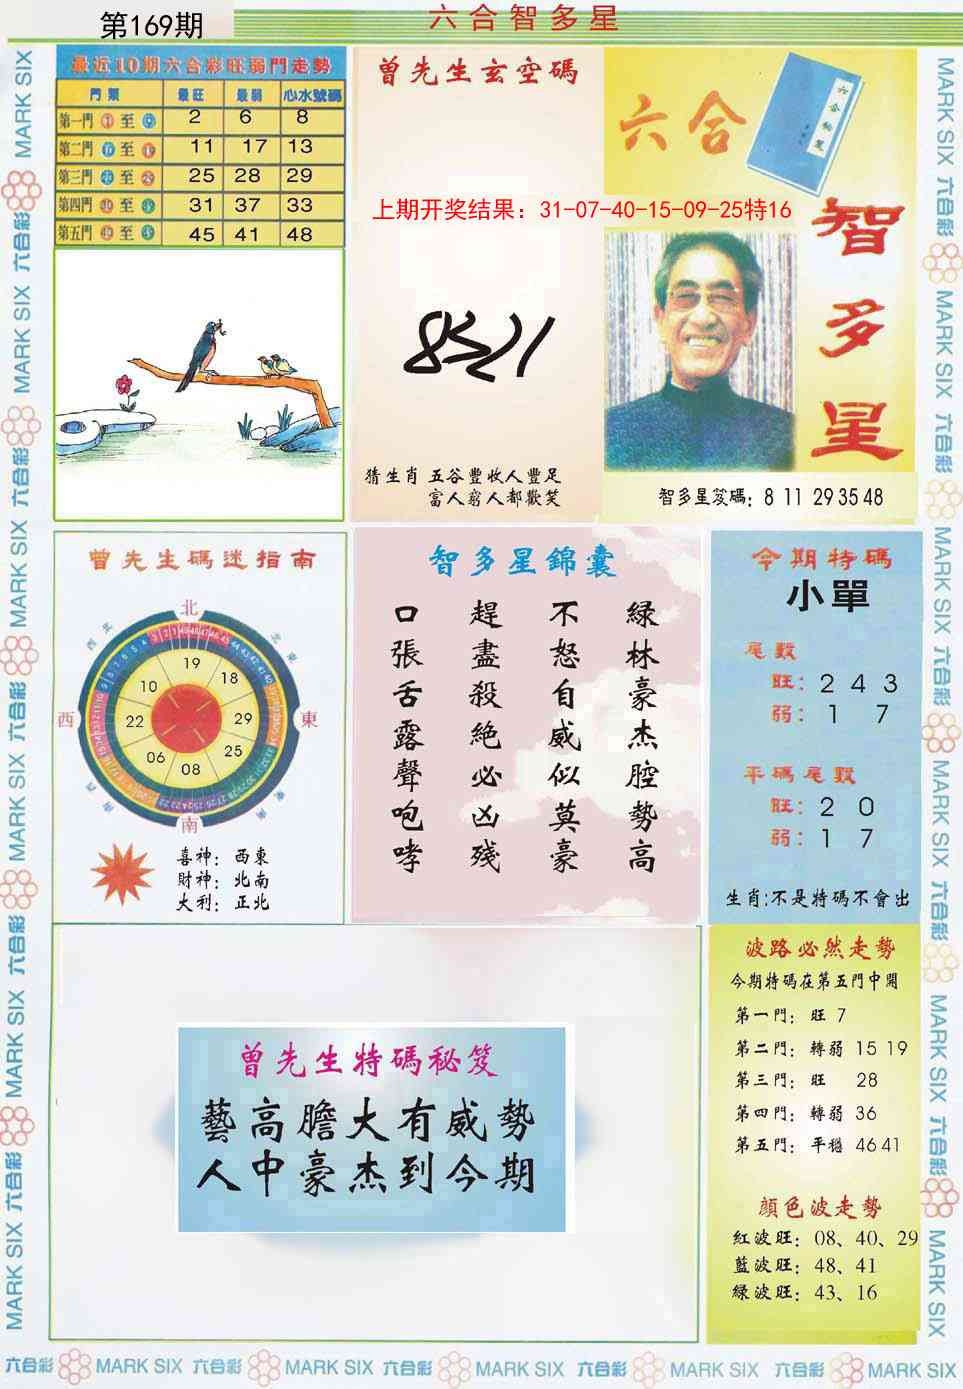 第169期
六合智多星
最近10期六合彩旺弱門走勢
門類 最旺 最弱 心水號碼
第一門 至 2 6 8
第二門 至 11 17 13
第三門 至 25 28 29
第四門 至 31 37 33
第五門 至 45 41 48
曾先生玄空碼
上期开奖结果：31-07-40-15-09-25特16
猜生肖 五谷豐收人豐足
富人窮人都歡笑
六合
智多星
智多星笈碼：8 11 29 35 48
曾先生碼迷指南
北
西
東
南
19
18
29
25
08
06
22
10
喜神：西東
財神：北南
大利：正北
智多星錦囊
綠林豪杰腔勢高
不怒自威似莫豪
趕盡殺絕必凶殘
口張舌露聲咆哮
今期特碼
小單
尾數
旺：2 4 3
弱：1 7
平碼尾數
旺：2 0
弱：1 7
生肖:不是特碼不會出
曾先生特碼秘笈
藝高膽大有威勢
人中豪杰到今期
波路必然走勢
今期特碼在第五門中開
第一門：旺 7
第二門：轉弱 15 19
第三門：旺 28
第四門：轉弱 36
第五門：平穩 46 41
顏色波走勢
紅波旺：08、40、29
藍波旺：48、41
綠波旺：43、16
六合彩 MARK SIX 六合彩 MARK SIX 六合彩 MARK SIX 六合彩 MARK SIX 六合彩 MARK SIX